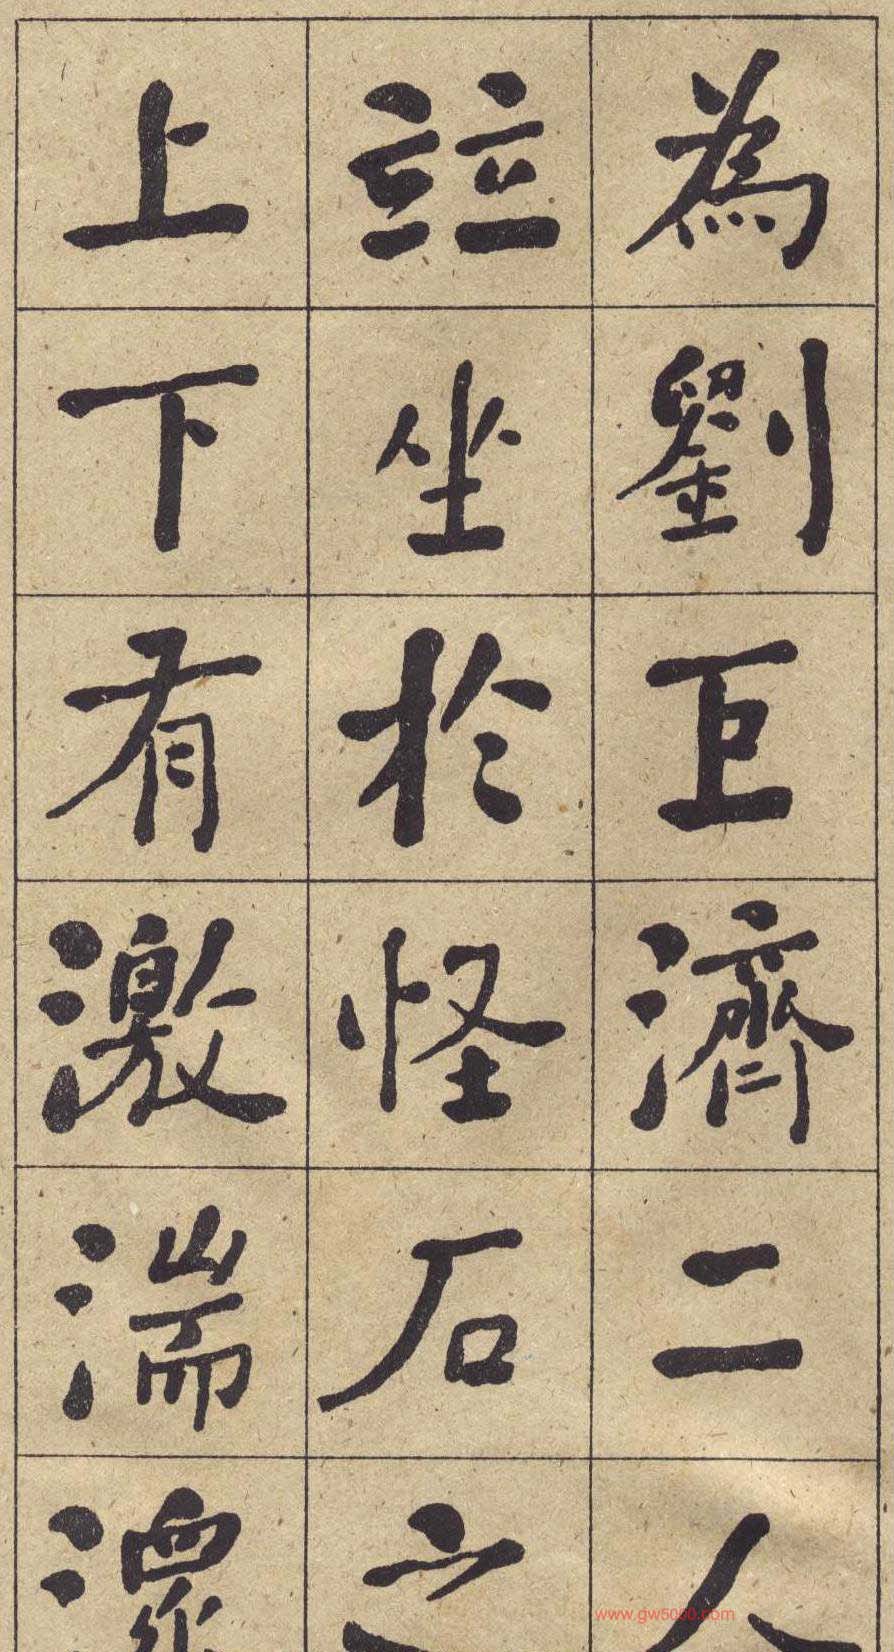 為劉巨濟二人
竝坐於怪石之
上下有激湍潀
www.gw5000.com